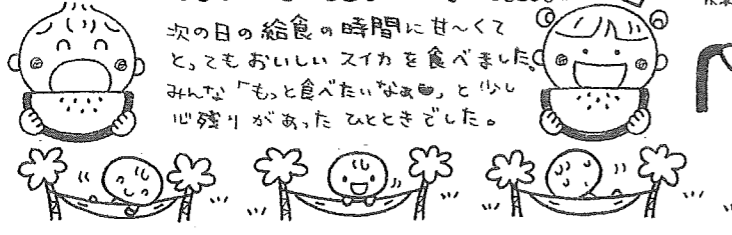 次の日の給食の時間に甘〜くて
とってもおいしいスイカを食べました。
みんな「もっと食べたいなぁ♥」と少し
心残りがあったひとときでした。